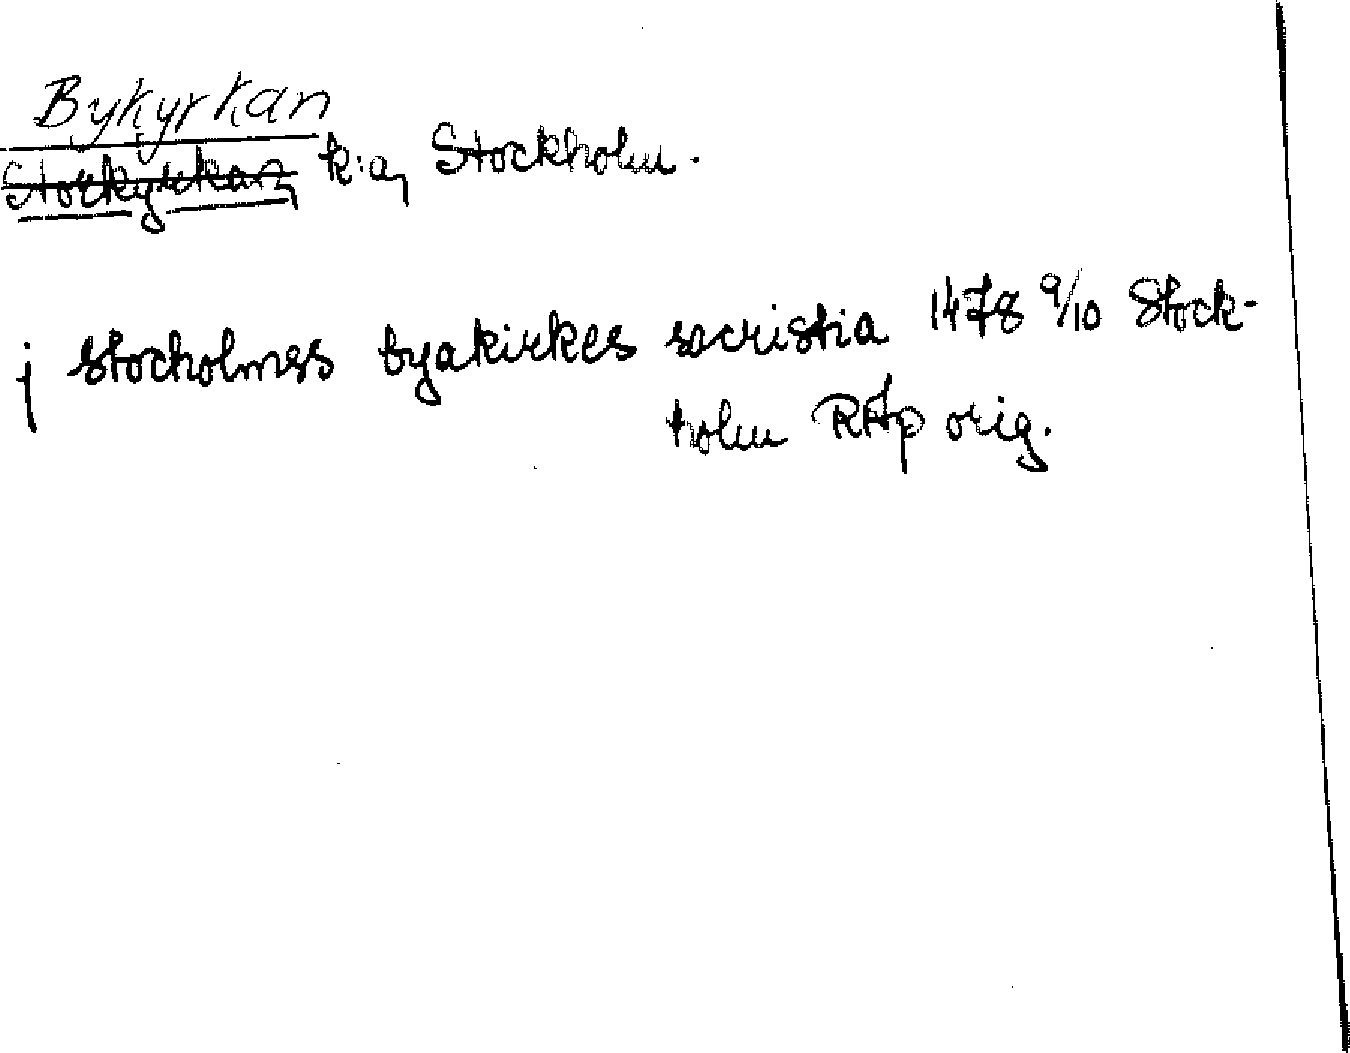 Bykyrkan
Storkyrkan, k:a, Stockholm.
j stocholmss byakirkes sacristia 1478 9/10 Stock-
holm RAp orig.